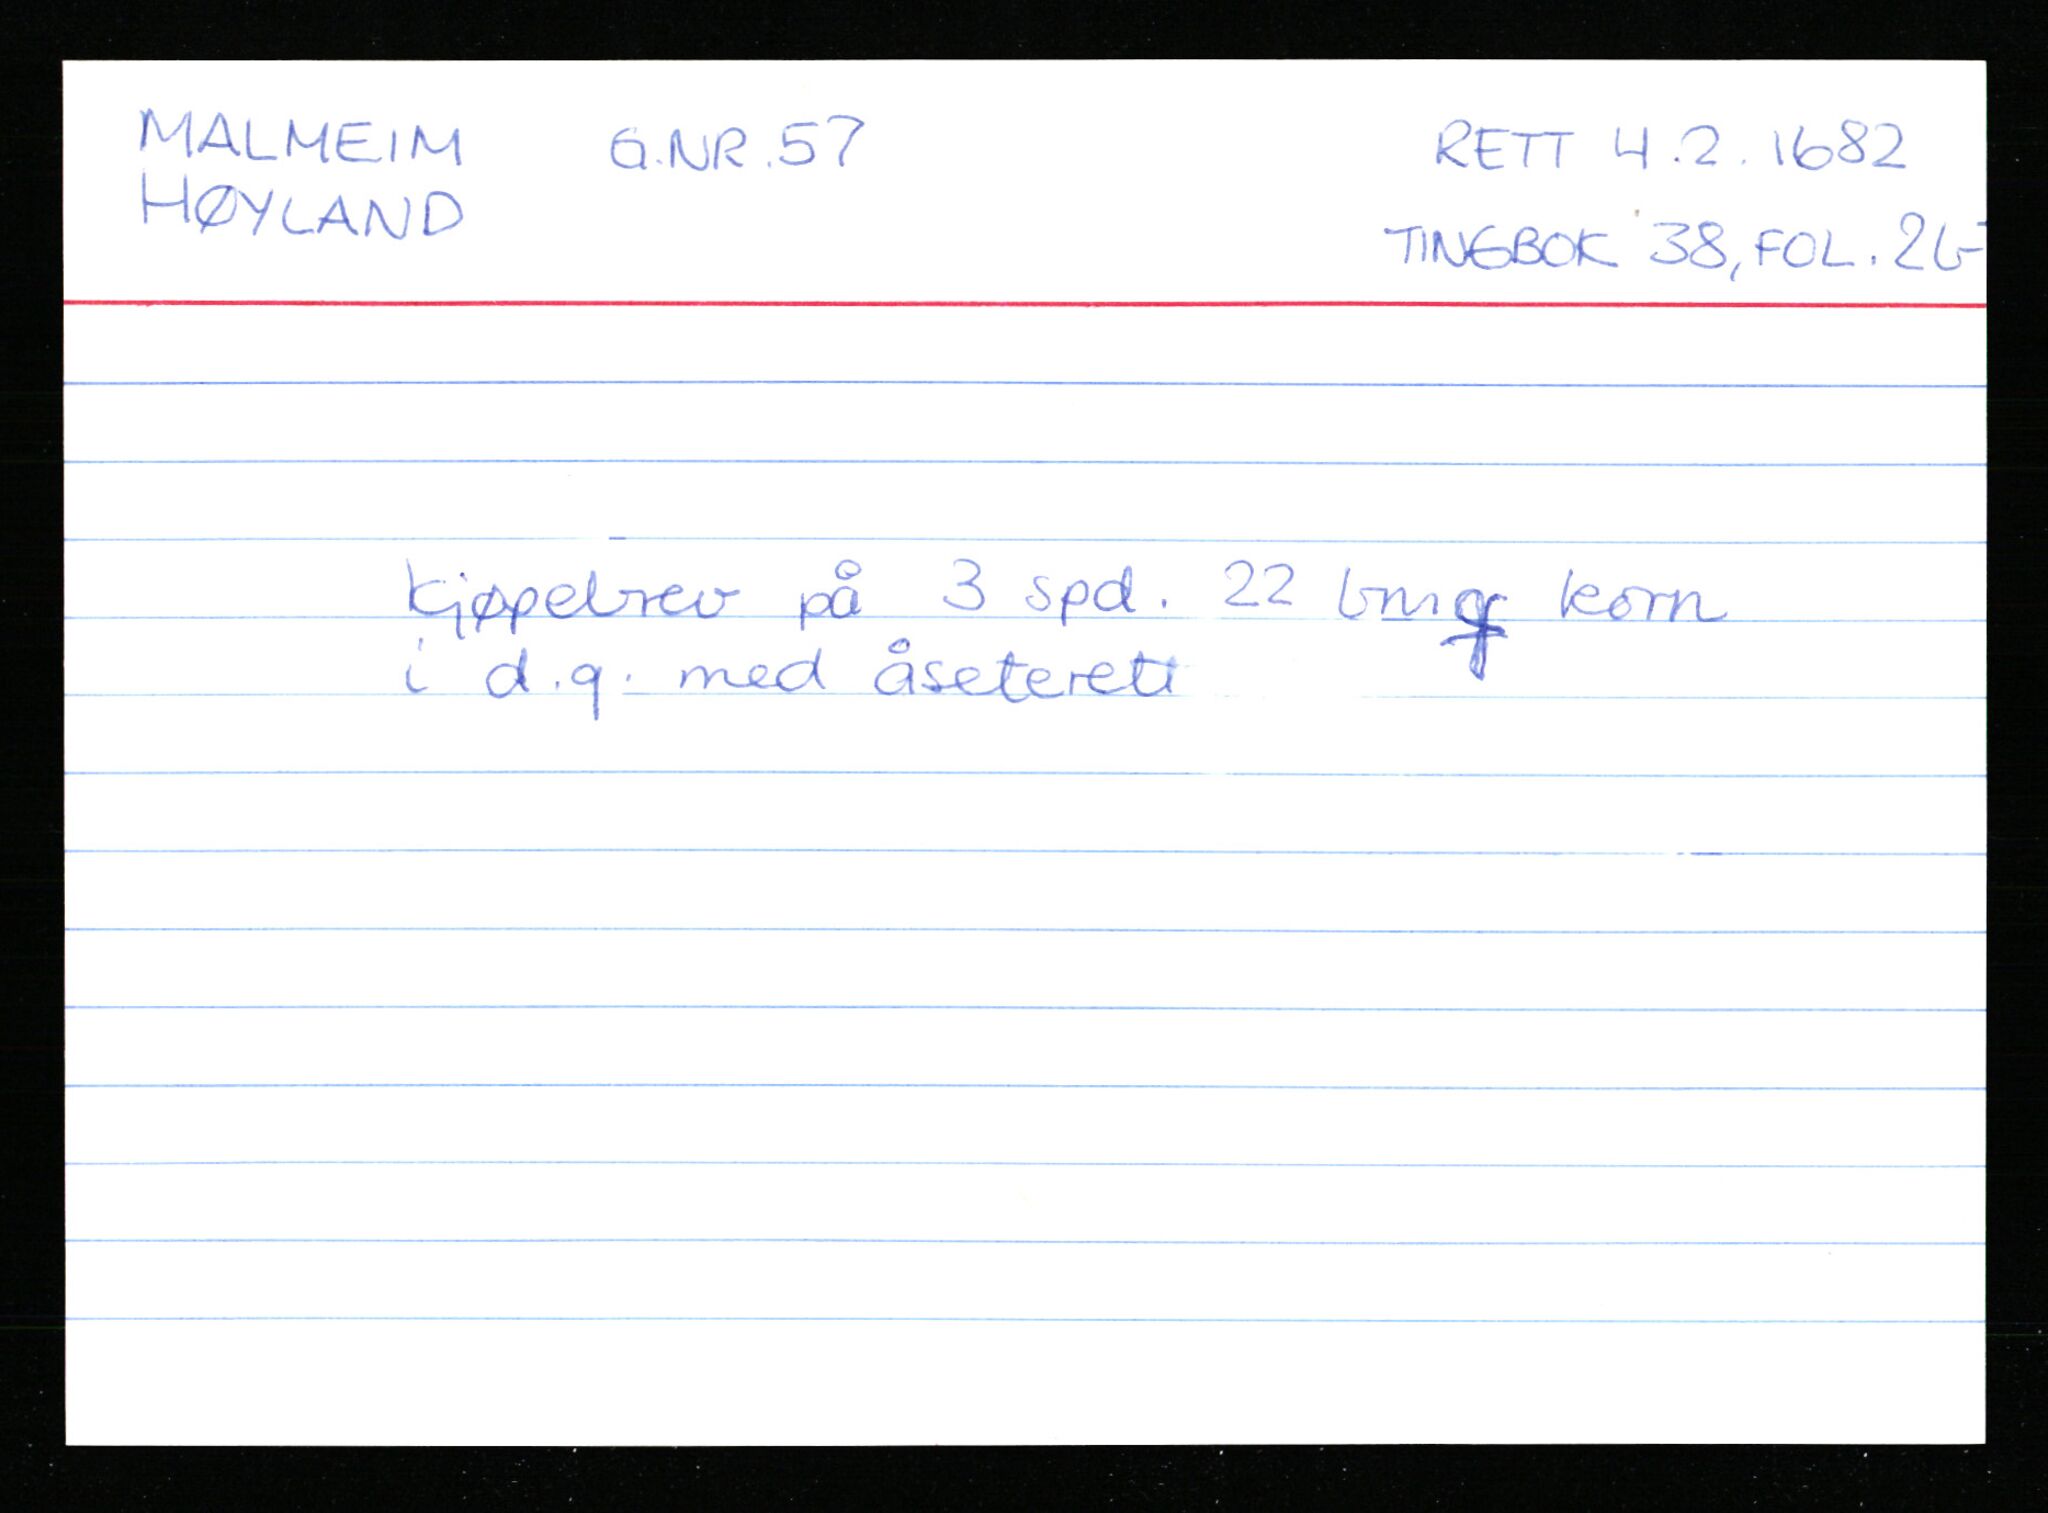 MALMEIM G.NR.57 RETT 4.2.1682
HØYLAND TINGBOK 38, FOL.
kjøpebrev på 3 spd. 22 bmg korn
i d.g. med åseterett